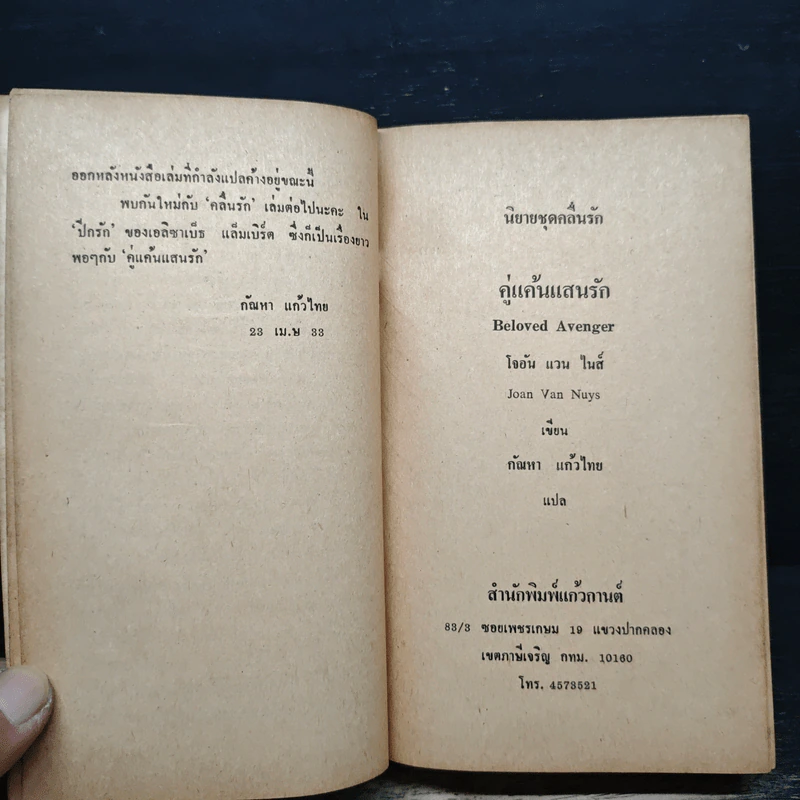 ออกหลังหนังสือเล่มที่กำลังแปลค้างอยู่ขณะนี้
พบกันใหม่กับ 'คลื่นรัก' เล่มต่อไปนะคะ ใน
'ปีกรัก' ของเอลิซาเบ็ธ แล็มเบิร์ต ซึ่งก็เป็นเรื่องยาว
พอๆกับ 'คู่แค้นแสนรัก'
กัณหา แก้วไทย
23 เม.ษ 33
นิยายชุดคลื่นรัก
คู่แค้นแสนรัก
Beloved Avenger
โจอัน แวน ไนส์
Joan Van Nuys
เขียน
กัณหา แก้วไทย
แปล
สำนักพิมพ์แก้วกานต์
83/3 ซอยเพชรเกษม 19 แขวงปากคลอง
เขตภาษีเจริญ กทม. 10160
โทร. 4573521